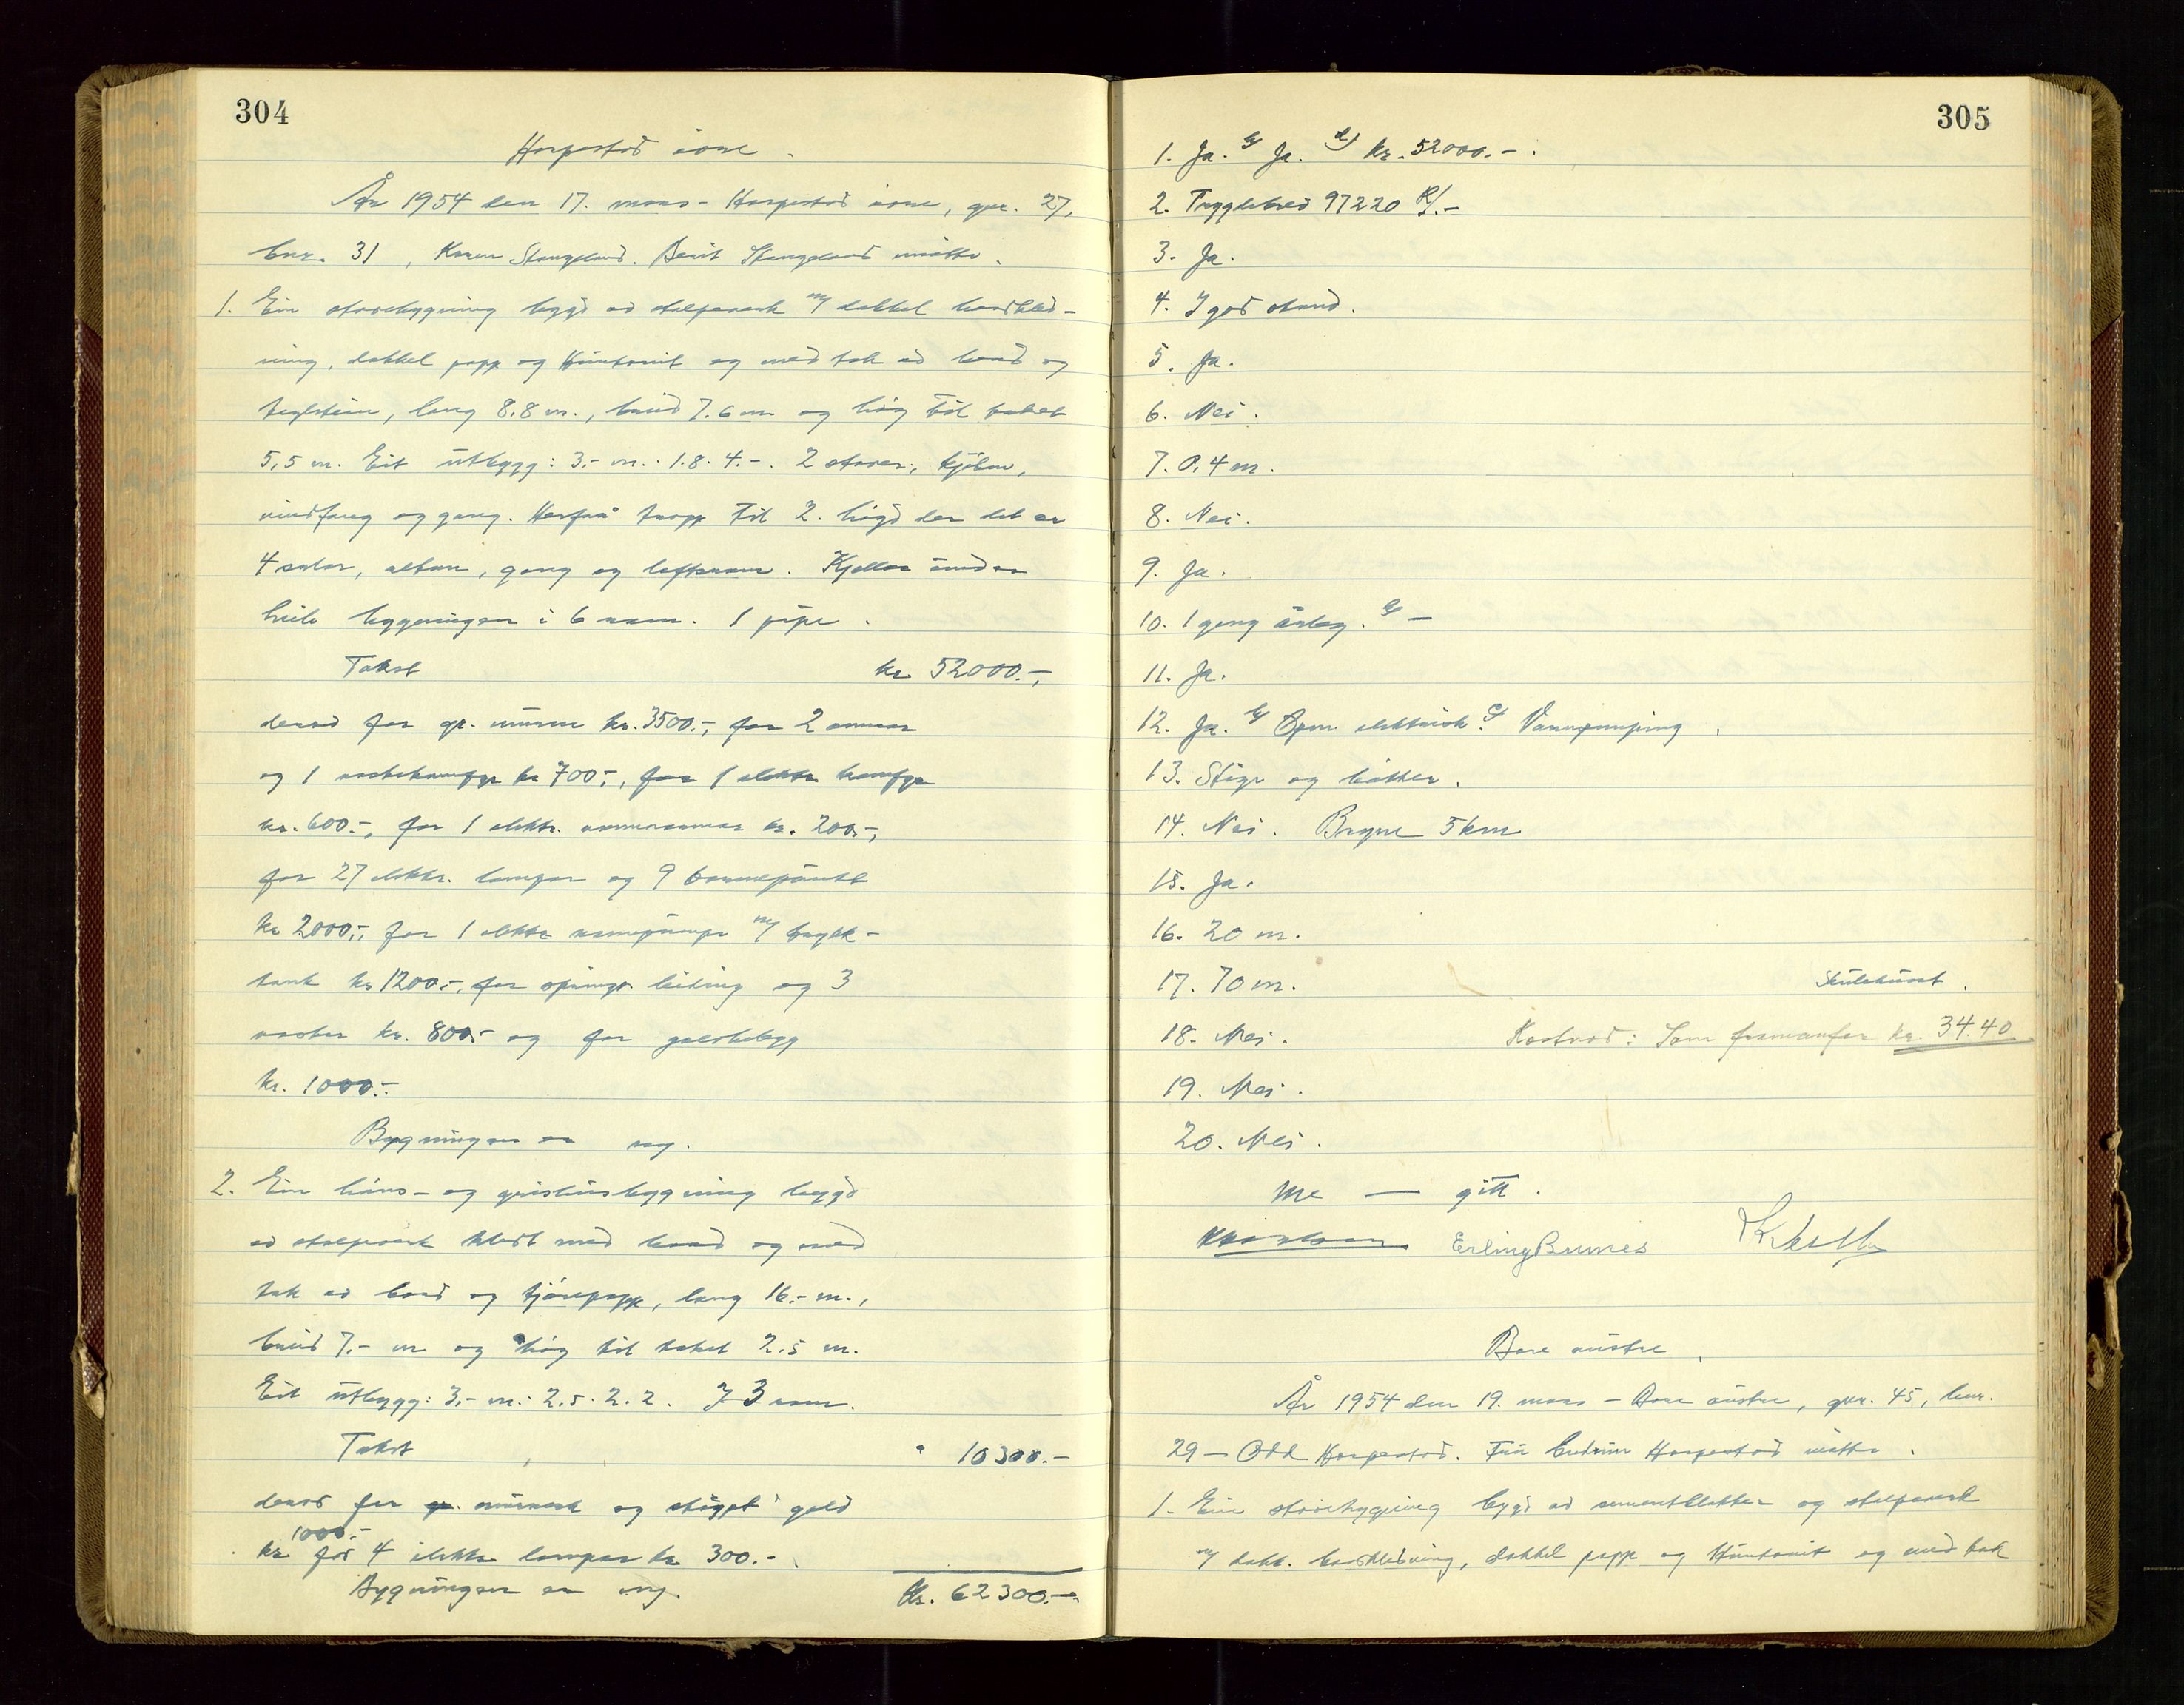 304
Horpestad øvre.
År 1954 den 17. mars - Horpestad øvre, gnr. 27,
bnr. 31, Karen Stangeland. Berit Stangeland møtte.
1. Ein stovebygning bygd av stolpeverk m/ dobbel bordkled-
ning, dobbel papp og Huntonit og med tak av bord og
teglstein, lang 8,8 m., breid 7.6 m og høg til taket
5,5 m. Eit utbygg: 3,- m. · 1.8 · 4.-. 2 stover, kjøken,
vindfang og gang. Herfrå trapp til 2. høgd der det er
4 salar, altan, gang og loftsrom. Kjellar under
heile bygningen i 6 rom. 1 pipe.
Takst kr. 52000.-,
derav for gr. muren kr. 3500.-, for 2 omnar
og 1 vaskekomfyr kr 700.-, for 1 elektr. komfyr
kr. 600.-, for 1 elektr. omnar kr. 200.-,
for 27 elektr. lampar og 9 varmepunkt
kr 2000.-, for 1 elektr vannpumpe m/ trykk-
tank kr 1200.-, for springv. leiding og 3
vaskar kr. 800.- og for golvbelegg
kr. 1000.-
Bygningen er ny.
2. Ein høns- og grishusbygning bygd
av stolpeverk kledt med bord og med
tak av bord og tjørepapp, lang 16.- m.,
breid 7.- m og høg til taket 2.5 m.
Eit utbygg: 3,- m. · 2.5 · 2.2. I 3 rom.
Takst " 10300.-
derav for murverk og støypt golv
kr 1000.- for 4 elektr lampar kr 300.-.
Bygningen er ny. Kr. 62300.-
305
1. Ja. b/ Ja. d/ kr. 52000.-.
2. Trygdebrev 97220 R/.-
3. Ja.
4. I god stand.
5. Ja.
6. Nei.
7. 0,4 m.
8. Nei.
9. Ja.
10. 1 gong årleg. b/ -
11. Ja.
12. Ja. b/ Open elektrisk. c/ Vannpumping.
13. Stige og bøtter.
14. Nei. Bryne 5 km
15. Ja.
16. 20 m.
17. 70 m. Skulehuset.
18. Nei. Kostnad: Som framanfor kr. 34.40
19. Nei.
20. Nei.
Me — gitt.
Erling Brunes
Bore austre.
År 1954 den 19. mars - Bore austre, gnr. 45, bnr.
29 - Odd Horpestad. Fru Gudrun Horpestad møtte.
1. Ein stovebygning bygd av sementblokker og stolpeverk
m/ dobb. bordkledning, dobbel papp og Huntonit og med tak